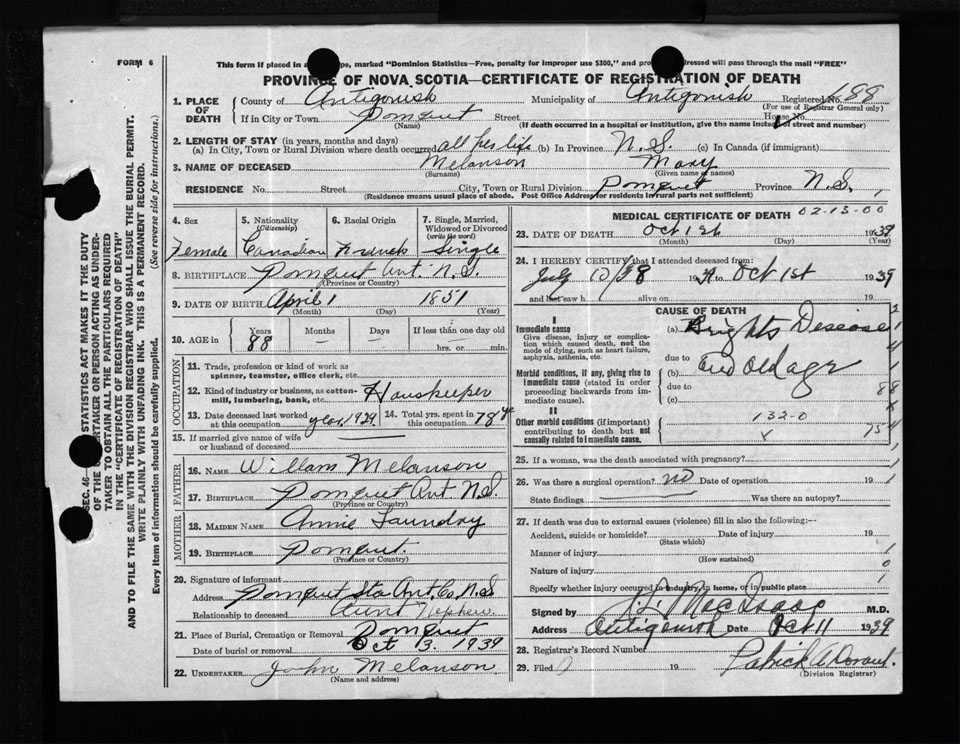 FORM 6
This form if placed in a pe, marked "Dominion Statistics—Free, penalty for improper use $300," and pr dressed will pass through the mail "FREE"
PROVINCE OF NOVA SCOTIA—CERTIFICATE OF REGISTRATION OF DEATH
SEC. 46— STATISTICS ACT MAKES IT THE DUTY
OF THE UNDERTAKER OR PERSON ACTING AS UNDER-
TAKER TO OBTAIN ALL THE PARTICULARS REQUIRED
IN THE "CERTIFICATE OF REGISTRATION OF DEATH"
AND TO FILE THE SAME WITH THE DIVISION REGISTRAR WHO SHALL ISSUE THE BURIAL PERMIT.
WRITE PLAINLY WITH UNFADING INK. THIS IS A PERMANENT RECORD.
Every item of information should be carefully supplied. (See reverse side for instructions.)
1. PLACE OF DEATH County of Antigonish Municipality of Antigonish Registered No. 188
(For use of Registrar General only)
If in City or Town Pomquet Street House No.
(Name) (If death occurred in a hospital or institution, give the name instead of street and number)
2. LENGTH OF STAY (in years, months and days)
(a) In City, Town or Rural Division where death occurred all her life (b) In Province N.S. (c) In Canada (if immigrant)
3. NAME OF DECEASED Melanson Mary
(Surname) (Given name or names)
RESIDENCE No. Street City, Town or Rural Division Pomquet Province N.S.
(Residence means usual place of abode. Post Office Address for residents in rural parts not sufficient)
4. Sex 5. Nationality (Citizenship) 6. Racial Origin 7. Single, Married, Widowed or Divorced (write the word)
Female Canadian French Single
8. BIRTHPLACE Pomquet Ant. N.S.
(Province or Country)
9. DATE OF BIRTH April 1 1851
(Month) (Day) (Year)
10. AGE in Years Months Days If less than one day old
88 — — hrs. or min.
OCCUPATION
11. Trade, profession or kind of work as spinner, teamster, office clerk, etc.
12. Kind of industry or business, as cotton-mill, lumbering, bank, etc. Houskeeper
13. Date deceased last worked at this occupation year 1929 14. Total yrs. spent in this occupation 78 yr
15. If married give name of wife or husband of deceased
FATHER
16. NAME Willam Melanson
17. BIRTHPLACE Pomquet Ant. N.S.
(Province or Country)
MOTHER
18. MAIDEN NAME Annie Laundry
19. BIRTHPLACE Pomquet.
(Province or Country)
20. Signature of informant
Address Pomquet Sta Ant. Co. N.S
Relationship to deceased Aunt Nephew.
21. Place of Burial, Cremation or Removal Pomquet
Date of burial or removal Oct 3. 1939
22. UNDERTAKER John Melanson
(Name and address)
MEDICAL CERTIFICATE OF DEATH 02-13-00
23. DATE OF DEATH Oct 1st 1939
(Month) (Day) (Year)
24. I HEREBY CERTIFY that I attended deceased from:
July 19 to Oct 1st 1939
and last saw h alive on 19
CAUSE OF DEATH
I
Immediate cause
Give disease, injury or complication which caused death, not the mode of dying, such as heart failure, asphyxia, asthenia, etc.
(a) Brights Dessiase
due to
Morbid conditions, if any, giving rise to immediate cause (stated in order proceeding backwards from immediate cause).
(b) and old age
due to
(c)
II
Other morbid conditions (if important) contributing to death but not causally related to immediate cause.
132-0
x
25. If a woman, was the death associated with pregnancy?
26. Was there a surgical operation? no Date of operation 19
State findings Was there an autopsy?
27. If death was due to external causes (violence) fill in also the following:—
Accident, suicide or homicide? Date of injury 19
(State which)
Manner of injury
(How sustained)
Nature of injury
Specify whether injury occurred in industry in home, or in public place
Signed by MacIsaac M.D.
Address Antigonish Date Oct 11 1939
28. Registrar's Record Number
29. Filed 19 Patrick A Dorant.
(Division Registrar)